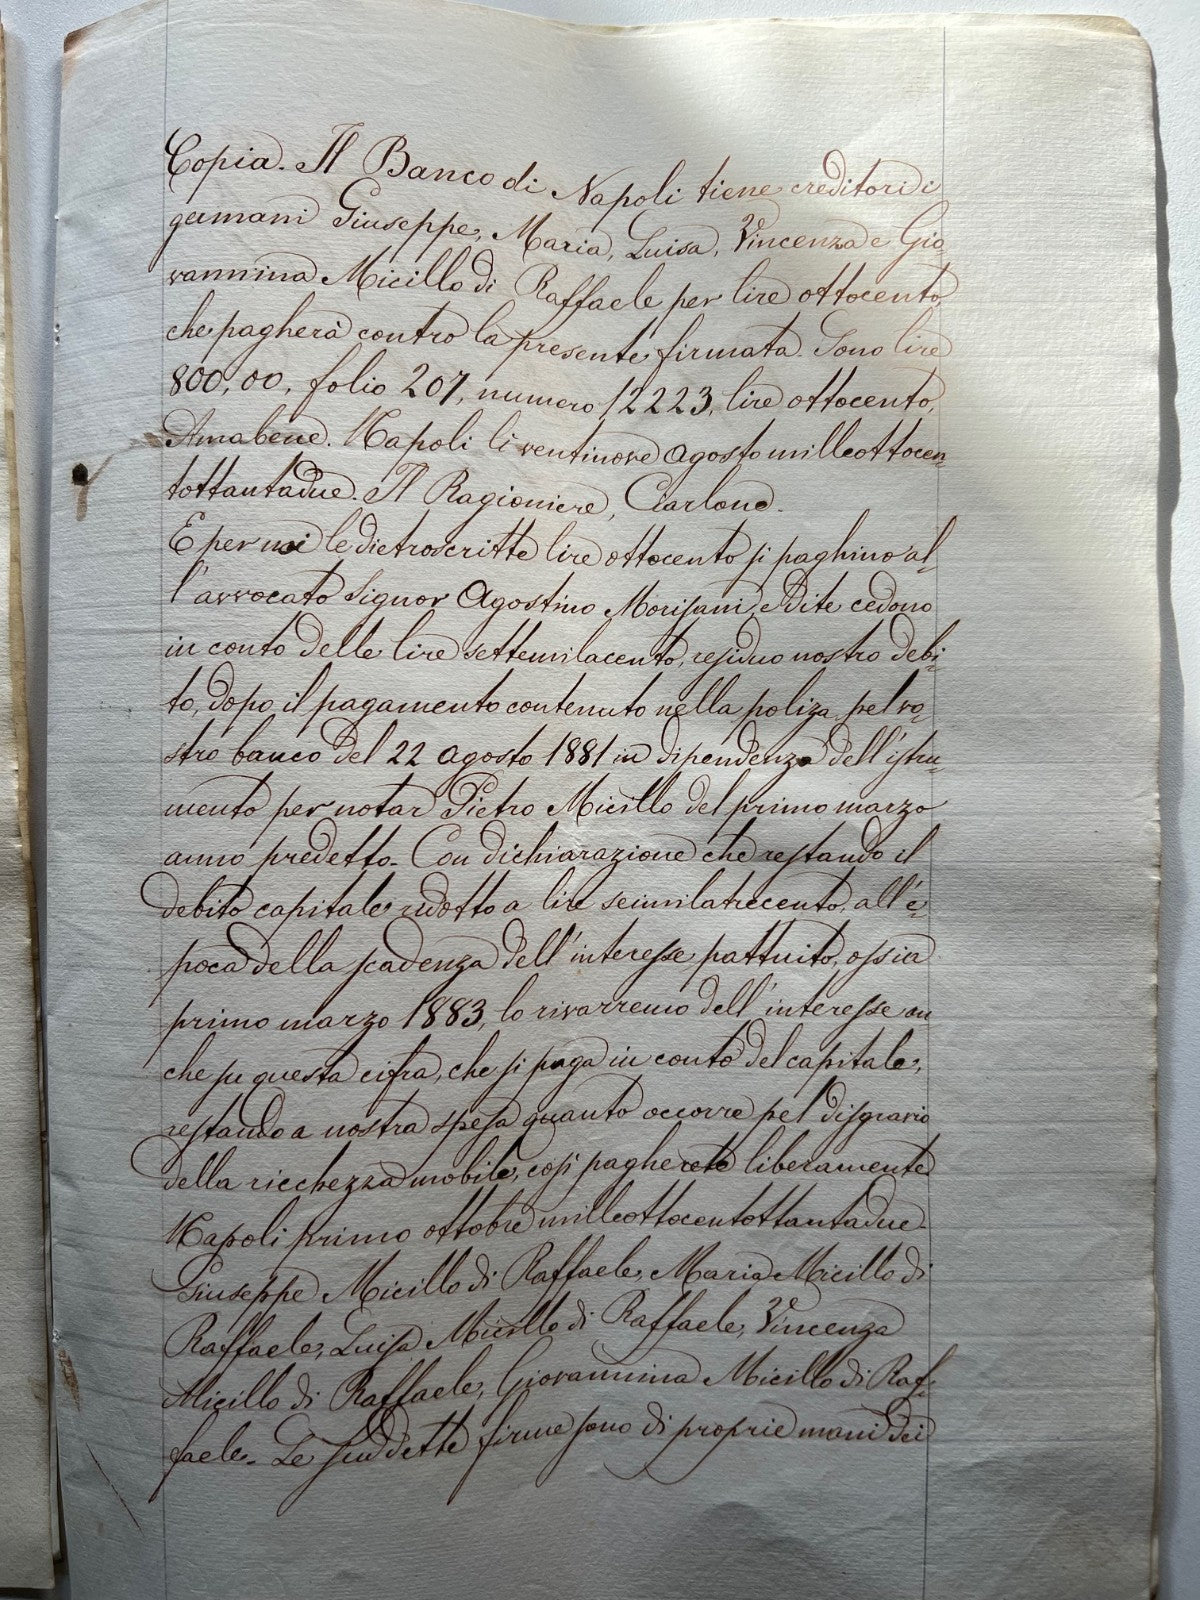 Copia. Il Banco di Napoli tiene creditori i
germani Giuseppe, Maria, Luisa, Vincenza e Gio
vannina Micillo di Raffaele per lire ottocento,
che pagherà contro la presente firmata. Sono lire
800,00, folio 207, numero 12223, lire ottocento,
Amabene. Napoli li ventinove Agosto milleottocen-
tottantadue. Il Ragioniere, Ciarlone.
E per noi le dietroscritte lire ottocento si paghino al-
l'avvocato Signor Agostino Morisani, e dite cedono
in conto delle lire settemilacento, residuo nostro debi-
to, dopo il pagamento contenuto nella poliza pel vo-
stro banco del 22 agosto 1881 in dipendenza dell'istru-
mento per notar Pietro Micillo del primo marzo
anno predetto. Con dichiarazione che restando il
debito capitale ridotto a lire seimilatrecento, all'e-
poca della scadenza dell'interesse pattuito, ossia
primo marzo 1883, lo rivarremo dell'interesse an
che su questa cifra, che si paga in conto del capitale,
restando a nostra spesa quanto occorre pel disgravio
della ricchezza mobile, così pagherete liberamente
Napoli primo ottobre milleottocentottantadue.
Giuseppe Micillo di Raffaele, Maria Micillo di
Raffaele, Luisa Micillo di Raffaele, Vincenza
Micillo di Raffaele, Giovannina Micillo di Raf-
faele. Le suddette firme sono di proprie mani dei